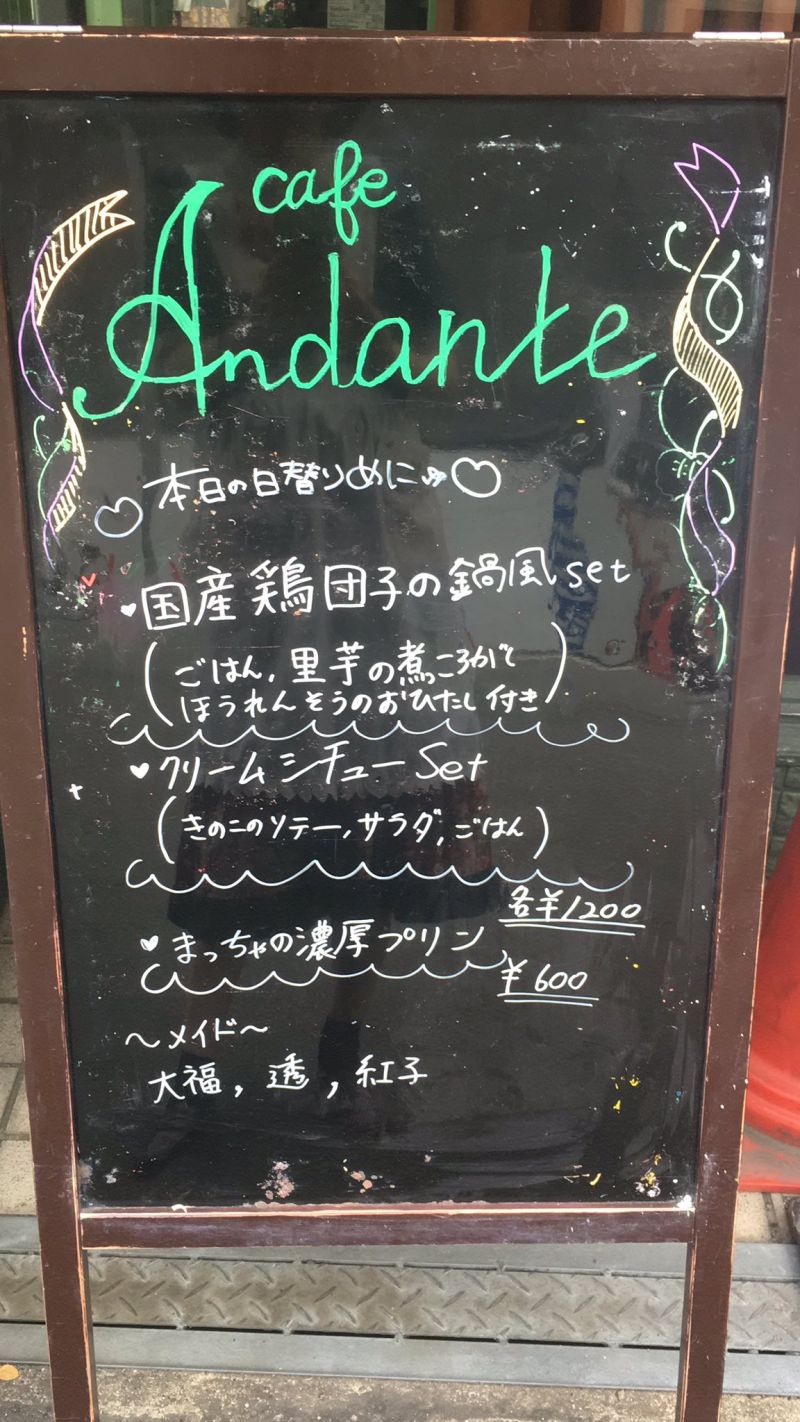 cafe
Andante
本日の日替りめにゅ♡
♥国産鶏団子の鍋風set
(ごはん,里芋の煮っころがして
ほうれんそうのおひたし付き)
♥クリームシチューSet
(きのこのソテー,サラダ,ごはん)
各¥1200
♥まっちゃの濃厚プリン
¥600
～メイド～
大福,透,紅子